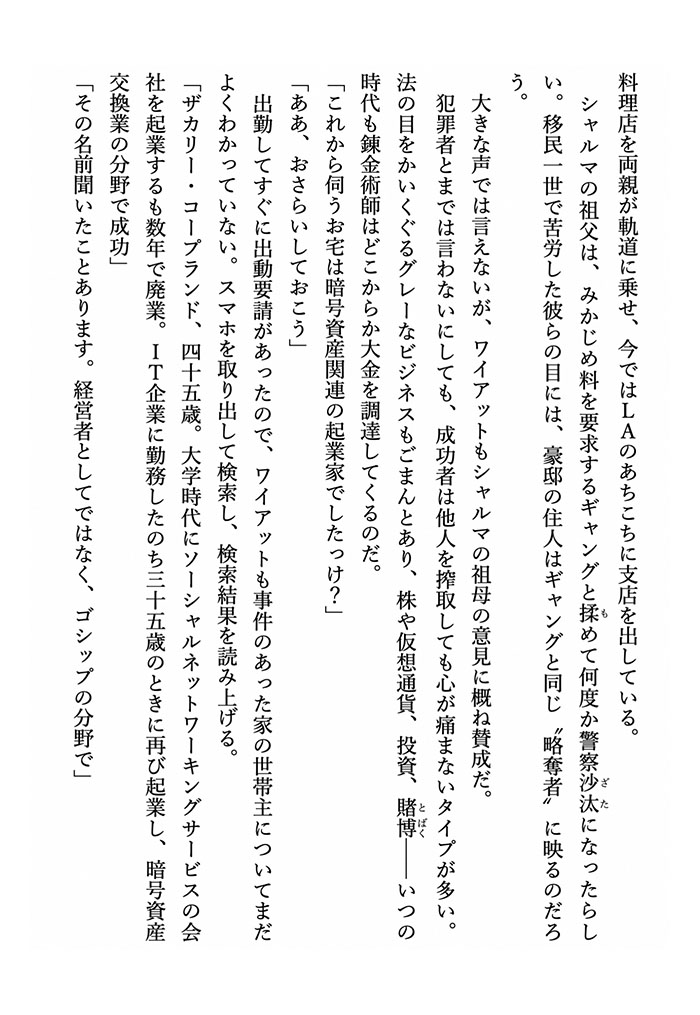 料理店を両親が軌道に乗せ、今ではLAのあちこちに支店を出している。
　シャルマの祖父は、みかじめ料を要求するギャングと揉めて何度か警察沙汰になったらし
い。移民一世で苦労した彼らの目には、豪邸の住人はギャングと同じ〝略奪者〟に映るのだろ
う。
　大きな声では言えないが、ワイアットもシャルマの祖母の意見に概ね賛成だ。
　犯罪者とまでは言わないにしても、成功者は他人を搾取しても心が痛まないタイプが多い。
法の目をかいくぐるグレーなビジネスもごまんとあり、株や仮想通貨、投資、賭博――いつの
時代も錬金術師はどこからか大金を調達してくるのだ。
「これから伺うお宅は暗号資産関連の起業家でしたっけ？」
「ああ、おさらいしておこう」
　出勤してすぐに出動要請があったので、ワイアットも事件のあった家の世帯主についてまだ
よくわかっていない。スマホを取り出して検索し、検索結果を読み上げる。
「ザカリー・コープランド、四十五歳。大学時代にソーシャルネットワーキングサービスの会
社を起業するも数年で廃業。IT企業に勤務したのち三十五歳のときに再び起業し、暗号資産
交換業の分野で成功」
「その名前聞いたことあります。経営者としてではなく、ゴシップの分野で」